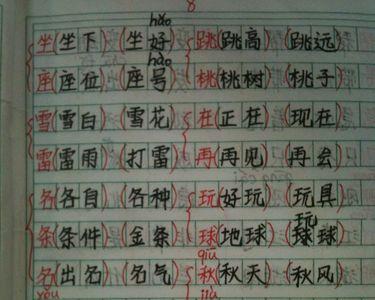 8
hǎo
坐(坐下)(坐好)跳(跳高)(跳远)
hào
座(座位)(座号)桃(桃树)(桃子)
雪(雪白)(雪花)在(正在)(现在)
雷(雷雨)(打雷)再(再见)(再会)
各(各自)(各种)玩(好玩)(玩具)
玩
条(条件)(金条)球(地球)(球球)
qiú
名(出名)(名气)秋(秋天)(秋风)
yǒu